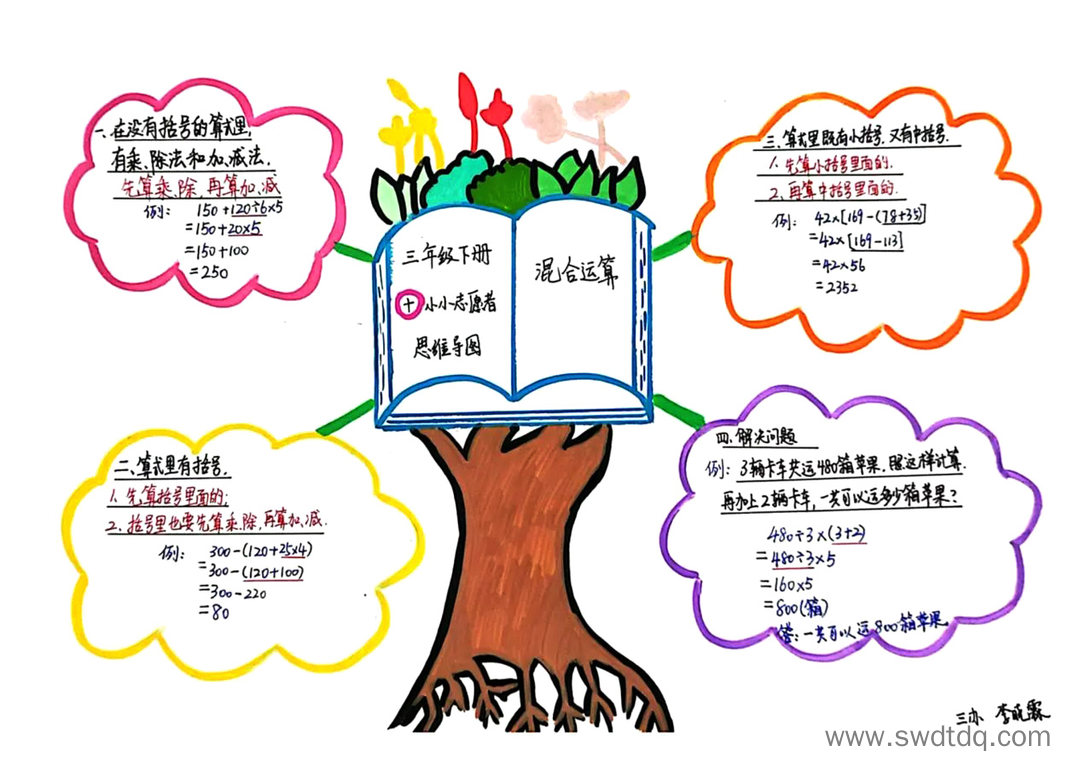 一、在没有括号的算式里,
有乘、除法和加、减法,
先算乘、除,再算加、减
例: 150+120÷6×5
=150+20×5
=150+100
=250
三年级下册
小小志愿者
思维导图
混合运算
三、算式里既有小括号,又有中括号.
1、先算小括号里面的.
2、再算中括号里面的.
例: 42×[169-(78+35)]
=42×[169-113]
=42×56
=2352
二、算式里有括号,
1、先算括号里面的;
2、括号里也要先算乘、除,再算加、减.
例: 300-(120+25×4)
=300-(120+100)
=300-220
=80
四、解决问题
例: 3辆卡车共运480箱苹果,照这样计算.
再加上2辆卡车,一共可以运多少箱苹果?
480÷3×(3+2)
=480÷3×5
=160×5
=800(箱)
答:一共可以运800箱苹果
www.swdtdq.com